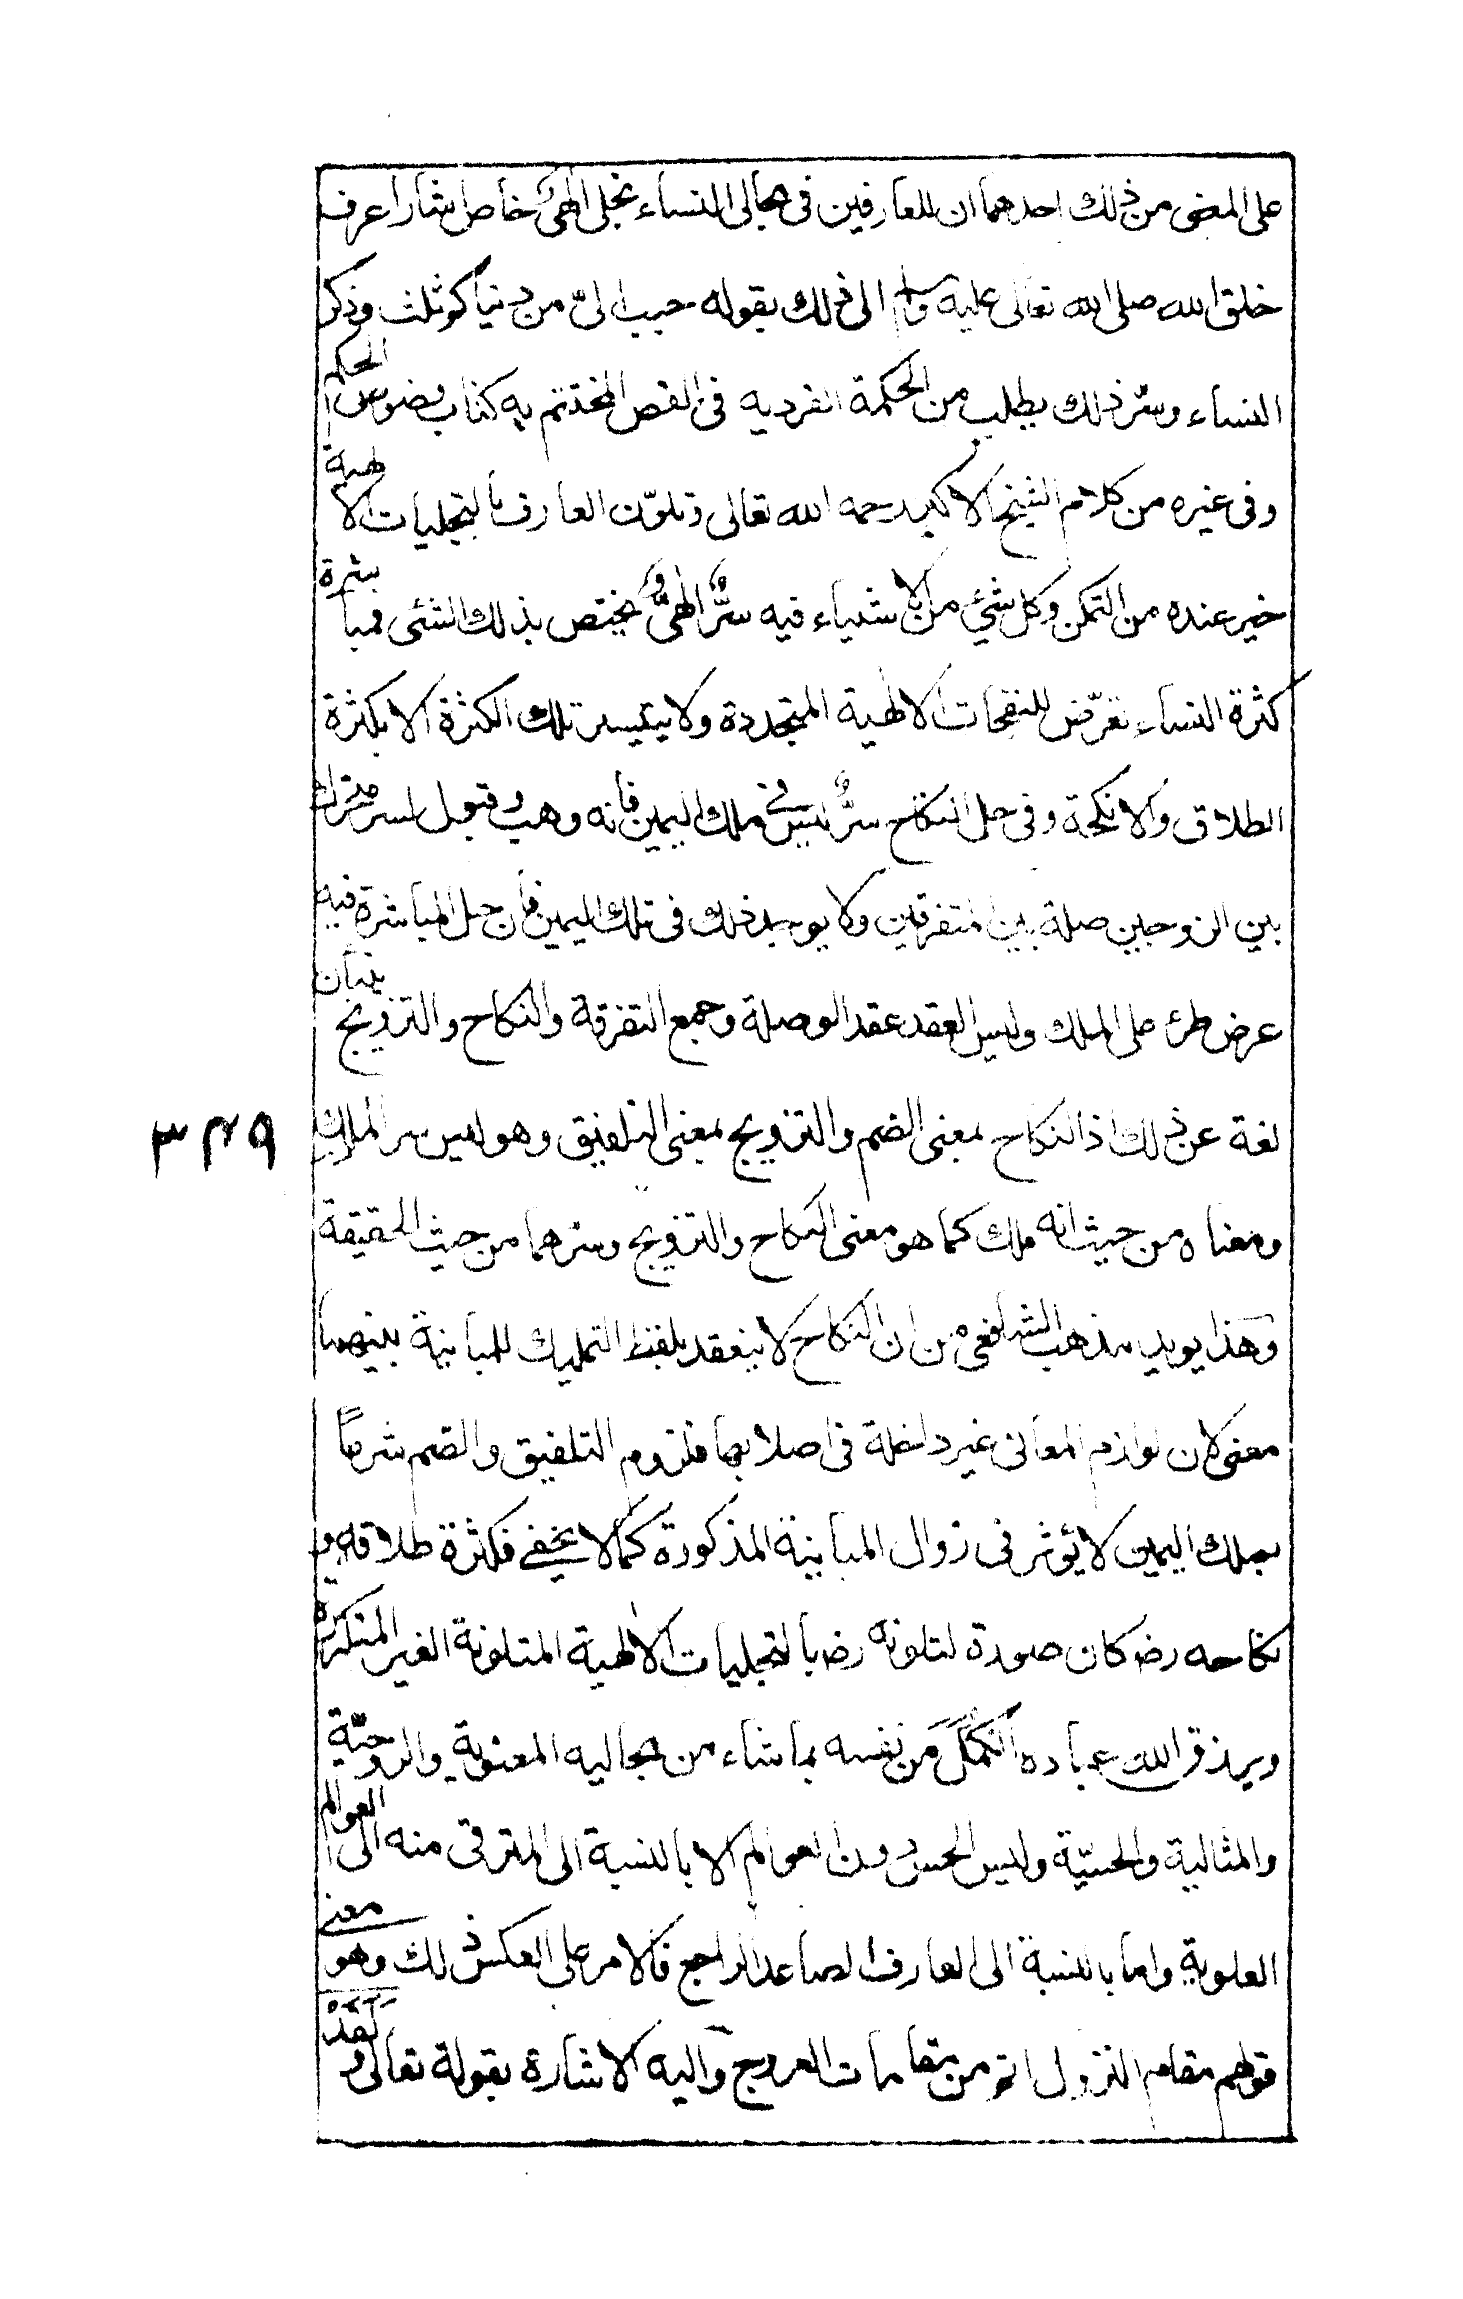 على المضى من ذلك احدهما ان للعارفين فى مجالى النساء تجلى الهىّ خاص اشار اعرف
خلق الله صلى الله تعالى عليه وسلم الى ذلك بقوله حبب الىّ من دنياكم ثلث وذكر
النساء وسر ذلك يطلب من الحكمة الفرديه فى الفص المختتم به كتاب فصوص الحكم
وفى غيره من كلام الشيخ الاكبر رحمه الله تعالى وتلوّن العارف بالتجليات الالهية
خير عنده من التمكن وكل شئ من الاشياء فيه سرٌّ الهىٌّ يختص بذلك الشئى فمباشرة
كثرة النساء تعرّض للنفحات الالهية المتجددة ولا يتيسر تلك الكثرة الا بكثرة
الطلاق والانكحة وفى حل النكاح سرٌّ ليس فى ملك اليمين فانه وهب وقبول لسر مشترك
بين الزوجين صلة بين المتفرقين ولا يوجد ذلك فى تلك اليمين فان حل المباشرة فيه
عرض طرئ على الملك وليس العقد عقد الوصلة وجمع التفرقة والنكاح والتزويج ينبأن
لغة عن ذلك اذ النكاح بمعنى الضم والتزويج بمعنى التلفيق وهو ليس سر الملك
ومعناه من حيث انه ملك كما هو معنى النكاح والتزويج وسرهما من حيث الحقيقة
وهذا يويد مذهب الشافعى من ان النكاح لا ينعقد بلفظ التمليك للمباينة بينهما
معنى لان لوازم المعانى غير داخلة فى اصلابها فلزوم التلفيق والضم شرعًا
بملك اليمين لا يؤثر فى زوال المباينة المذكورة كما لا يخفى فكثرة طلاقه و
نكاحه رض كان صورة لتلونه رض بالتجليات الالهية المتلونة الغير المتكررة
ويرزق الله عباده الكمّل من نفسه بما شاء من مجاليه المعنوية والروحيّة
والمثالية والحسيّة وليس الحس دون العوالم الا بالنسبة الى المترقى منه الى العوالم
العلوية واما بالنسبة الى العارف الصاعد الراجع فالامر على العكس ذلك وهو معنى
قولهم مقام النزول اتم من مقامات العروج واليه الاشارة بقولة تعالى ولَقَدْ
٣٤٩